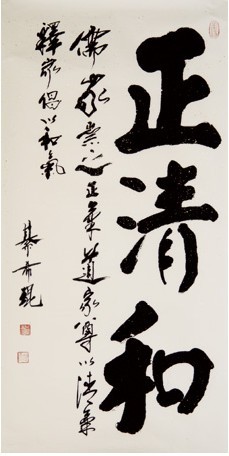 正清和
儒家崇以正氣道家尊以清氣
釋家倡以和氣